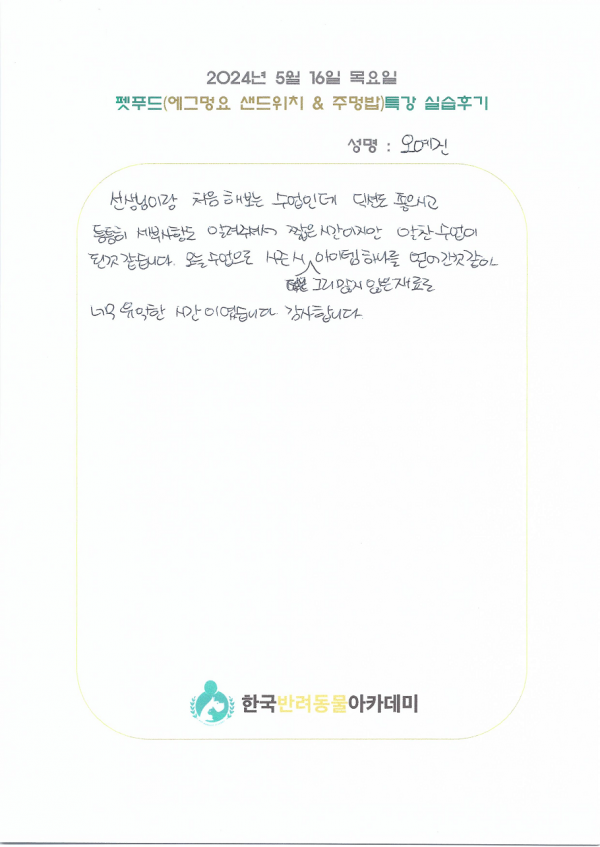 2024년 5월 16일 목요일
펫푸드(에그멍요 샌드위치 & 주멍밥)특강 실습후기
성명 : 오예진
선생님이랑 처음 해보는 수업인데 딕션도 좋으시고
틈틈히 세부사항도 알려주셔서 짧은 시간이지만 알찬 수업이
된것 같습니다. 오늘 수업으로 시 아이템 하나를 얻어간것 같아
그리 많지 않은 재료로
너무 유익한 시간이였습니다. 감사합니다.
한국반려동물아카데미